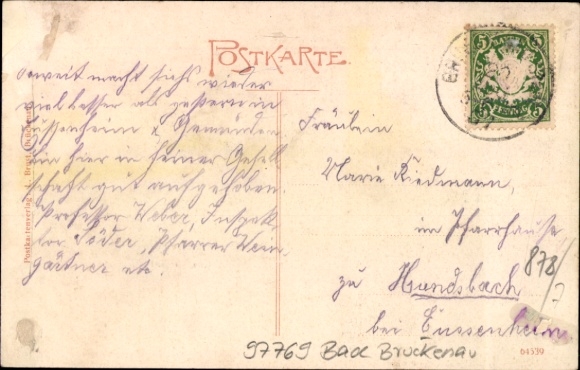 POSTKARTE.
soweit macht sichs wieder
viel besser als gestern in
Eussenheim & Gemünden
bin hier in feiner Gesell
schaft gut aufgehoben.
Professor Weber, Inspek
tor Söder, Pfarrer Wein
gärtner etc.
Fräulein
Marie Riedmann,
im Pfarrhause
zu Hundsbach
bei Eussenheim
5
5
878/7
97769 Bad Brückenau
64539